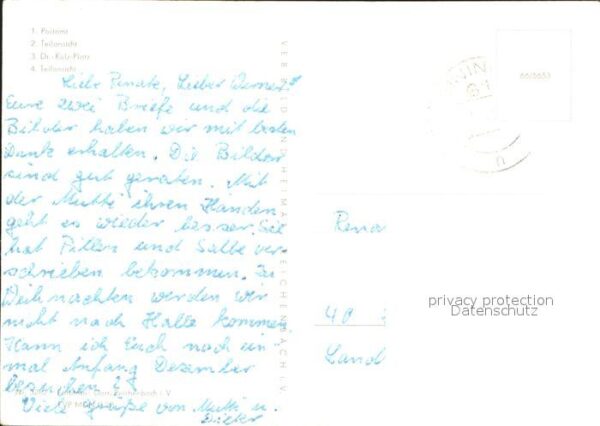 1. Postamt
2. Teilansicht
3. Dr.-Külz-Platz
4. Teilansicht
Liebe Renate, Lieber Werner!
Eure zwei Briefe und die
Bilder haben wir mit besten
Dank erhalten. Die Bilder
sind gut geraten. Mit
der Mutti ihren Händen
geht es wieder besser. Sie
hat Pillen und Salbe ver-
schrieben bekommen. Zu
Weihnachten werden wir
nicht nach Halle kommen
Kann ich Euch noch ein-
mal Anfang Dezember
besuchen?
Viele Grüße von Mutti u.
Dieter
VERLAG BILD UND HEIMAT REICHENBACH i. V.
66/5653
Rena
40
Land
privacy protection
Datenschutz